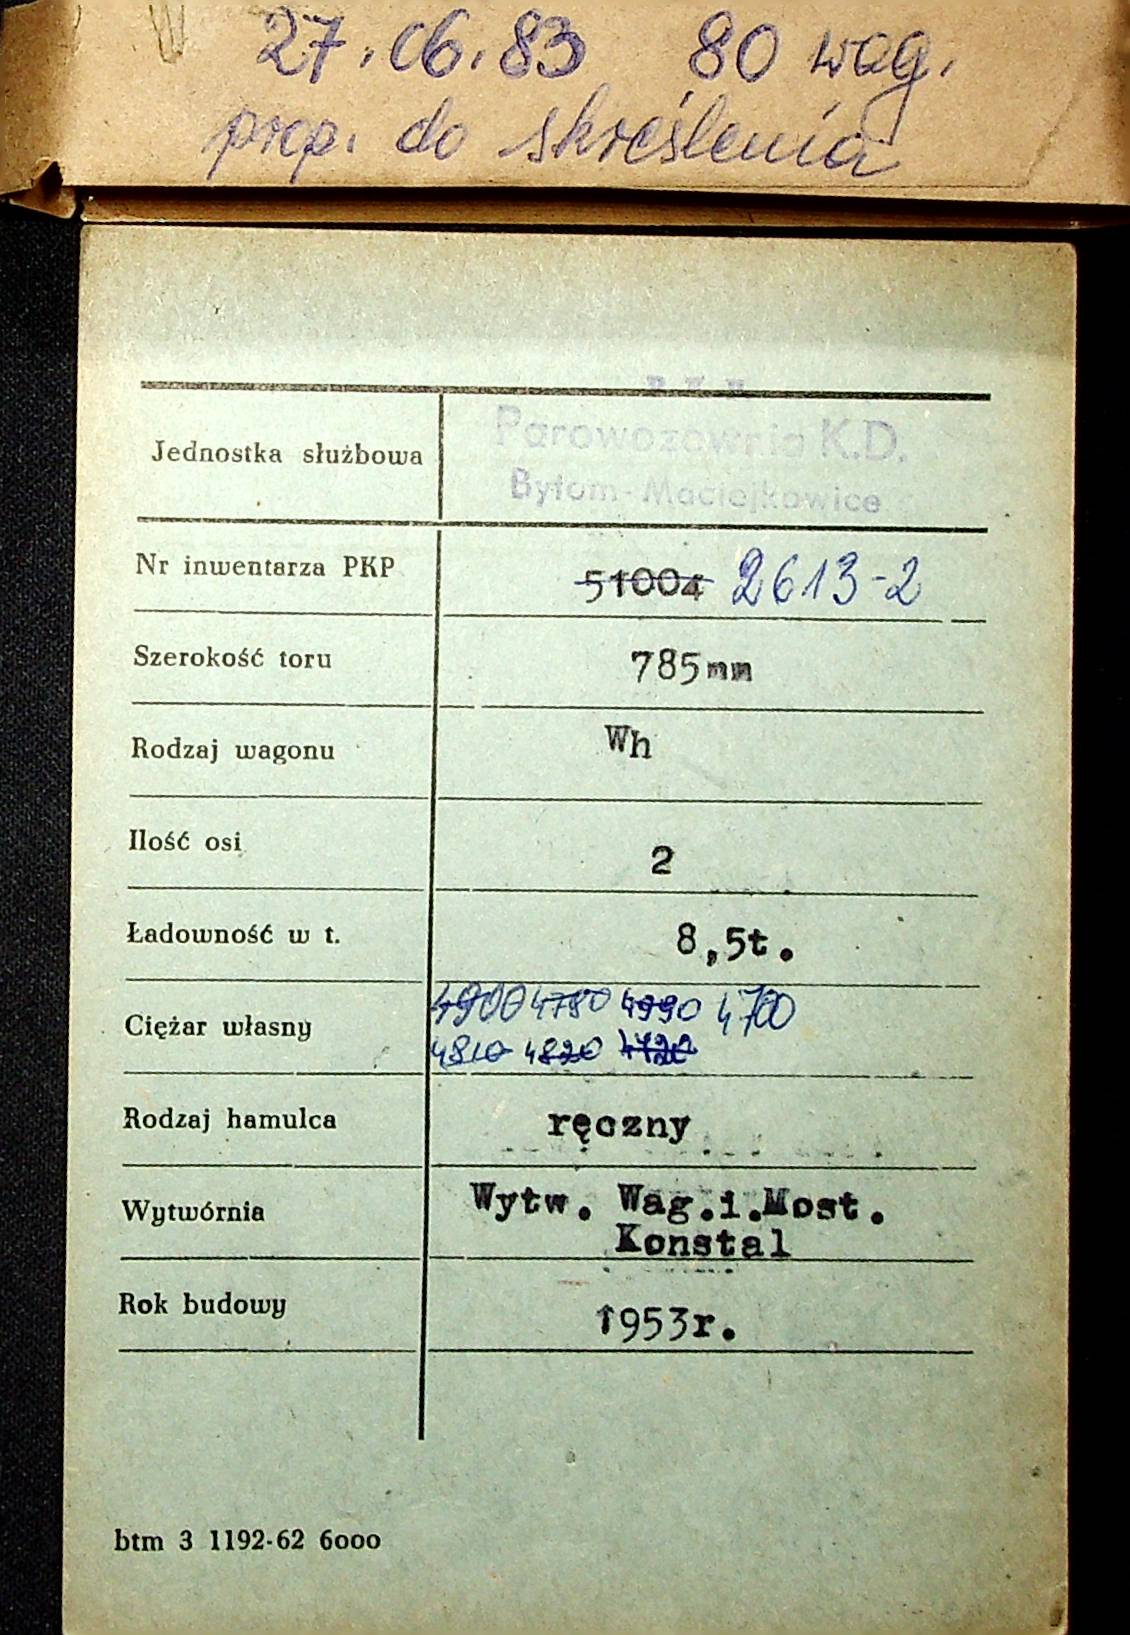 27.06.83 80 wag.
prop. do skreślenia
P. K. P.
Parowozownia K.D.
Bytom-Maciejkowice
Jednostka służbowa
Nr inwentarza PKP 51004 2613-2
Szerokość toru 785mm
Rodzaj wagonu Wh
Ilość osi 2
Ładowność w t. 8,5t.
Ciężar własny 4900 4780 4990 4700
4810 4820 4720
Rodzaj hamulca ręczny
Wytwórnia Wytw. Wag.i.Most.
Konstal
Rok budowy 1953r.
btm 3 1192-62 6000